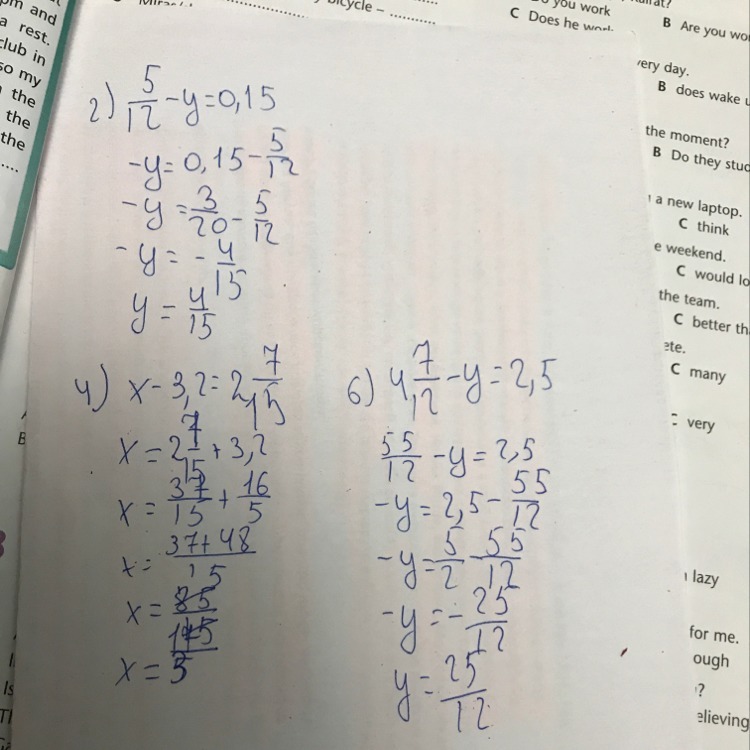 om and
a rest.
club in
so my
the
the
the
bicycle – ...........
you work
C Does he work
B Are you
very day.
B does wake
the moment?
B Do they
a new laptop.
C think
e weekend.
C would
the team.
C better
ete.
C many
very
lazy
for me.
ough
?
elieving
2) 5/12 - y = 0,15
-y = 0,15 - 5/12
-y = 3/20 - 5/12
-y = - 4/15
y = 4/15
4) x - 3,2 = 2 7/15
x = 2 7/15 + 3,2
x = 37/15 + 16/5
x = 37+48/15
x = 85/15
x =
6) 4 7/12 - y = 2,5
55/12 - y = 2,5
-y = 2,5 - 55/12
-y = 5/2 - 55/12
-y = - 25/12
y = 25/12